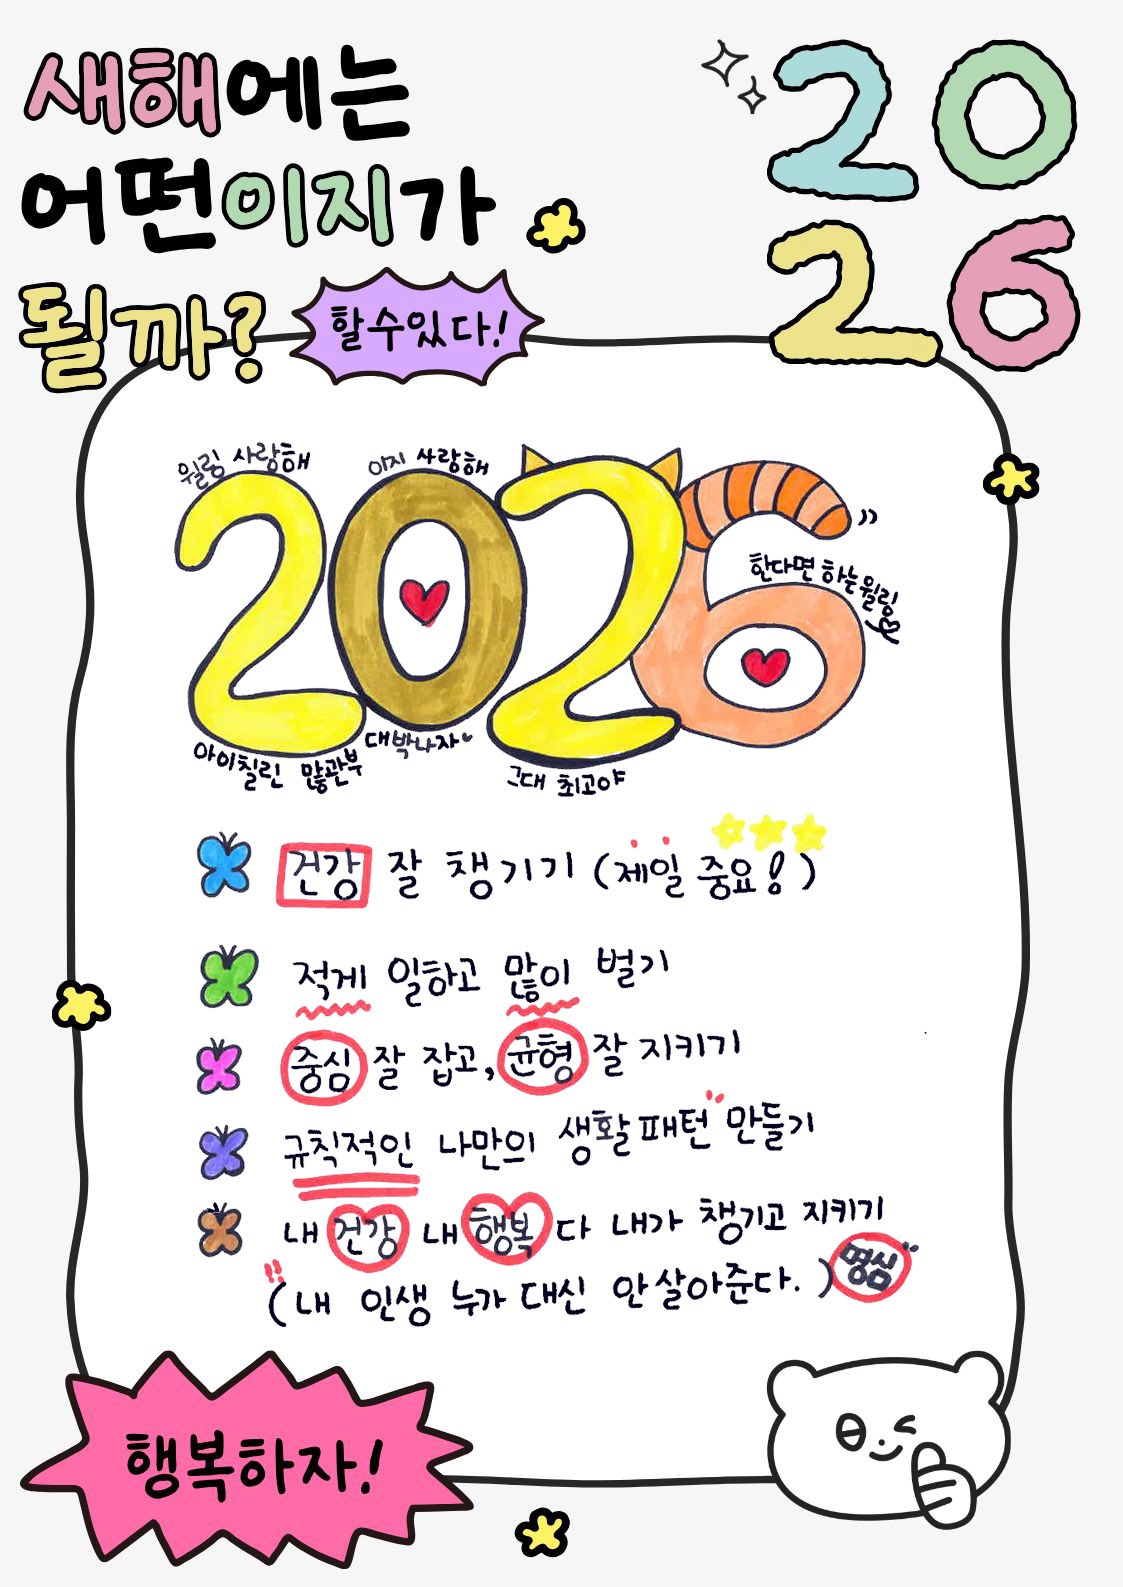 새해에는
어떤이지가
될까?
할수있다!
20
26
월링 사랑해
이지 사랑해
2026
한다면 하는월링
아이칠린 많관부
대박나자
그대 최고야
건강 잘 챙기기 (제일 중요!)
적게 일하고 많이 벌기
중심 잘 잡고, 균형 잘 지키기
규칙적인 나만의 생활패턴 만들기
내 건강 내 행복 다 내가 챙기고 지키기
!! (내 인생 누가 대신 안살아준다.) 명심
행복하자!